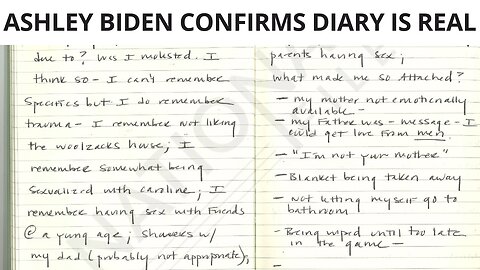 ASHLEY BIDEN CONFIRMS DIARY IS REAL
due to? Was I molested. I
think so - I can't remember
specifics but I do remember
trauma - I remember not liking
the woolzacks house; I
remember somewhat being
sexualized with caroline; I
remember having sex with friends
@ a young age; showers w/
my dad (probably not appropriate),
parents having sex;
what made me so attached?
- my mother not emotionally
available -
- my Father was - message - I
could get love from men.
- "I'm not your mother"
- Blanket being taken away
- not letting myself go to
bathroom
- Being wiped until too late
in the game -
-